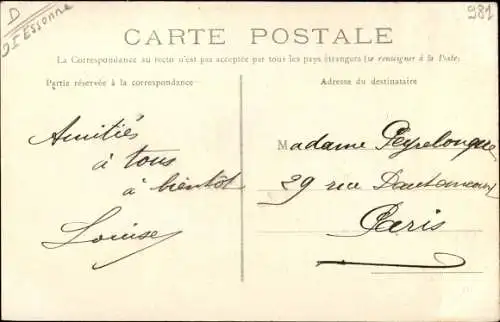 D
91 Essonne
981
CARTE POSTALE
La Correspondance au recto n'est pas acceptée par tous les pays étrangers (se renseigner à la Poste)
Partie réservée à la correspondance
Adresse du destinataire
Amitiés
à tous
à bientôt
Louise
Madame Peyrelongue
29 rue Dautancourt
Paris